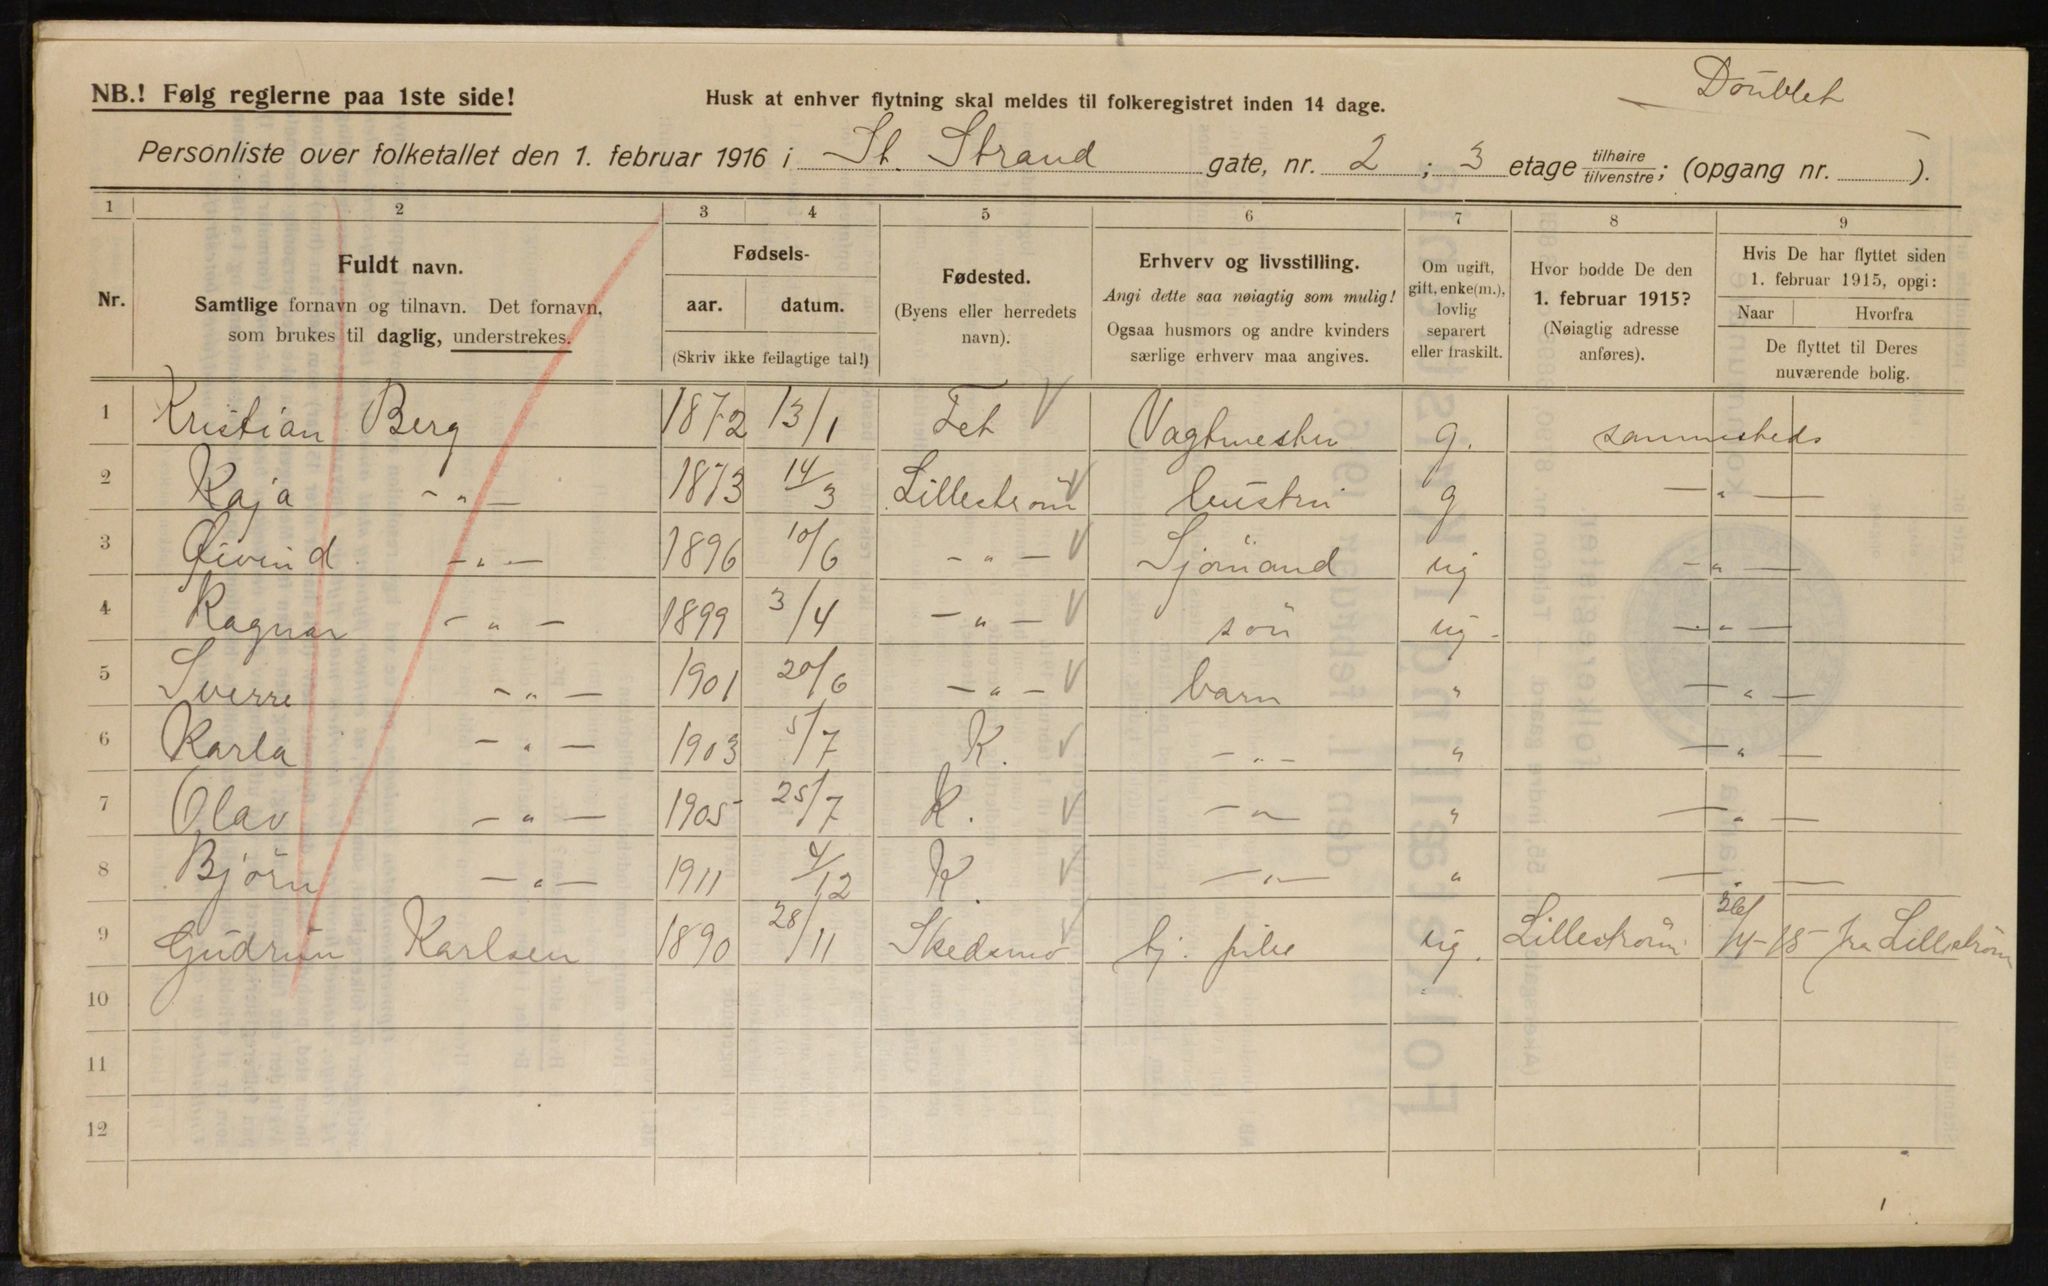 Doublet
NB.! Følg reglerne paa 1ste side!
Husk at enhver flytning skal meldes til folkeregistret inden 14 dage.
Personliste over folketallet den 1. februar 1916 i St. Strand gate, nr. 2 ; 3 etage tilhøire tilvenstre; (opgang nr. ).
1 2 3 4 5 6 7 8 9
Nr.
Fuldt navn.
Samtlige fornavn og tilnavn. Det fornavn,
som brukes til daglig, understrekes.
Fødsels-
aar. datum.
(Skriv ikke feilagtige tal!)
Fødested.
(Byens eller herredets
navn).
Erhverv og livsstilling.
Angi dette saa nøiagtig som mulig!
Ogsaa husmors og andre kvinders
særlige erhverv maa angives.
Om ugift,
gift, enke(m.),
lovlig
separert
eller fraskilt.
Hvor bodde De den
1. februar 1915?
(Nøiagtig adresse
anføres).
Hvis De har flyttet siden
1. februar 1915, opgi:
Naar Hvorfra
De flyttet til Deres
nuværende bolig.
1 Kristian Berg 1872 13/1 Fet Vagtmester g. sammesteds
2 Kaja - " - 1873 14/3 Lilleström hustru g - " -
3 Øivind - " - 1896 10/6 - " - Sjömand ug - " -
4 Ragnar - " - 1899 3/4 - " - sön ug - - " -
5 Sverre - " - 1901 20/6 - " - barn " - " -
6 Karla - " - 1903 5/7 K. - " - " - " -
7 Olav - " - 1905 25/7 K. - " - " - " -
8 Björn - " - 1911 4/12 K. - " - " - " -
9 Gudrun Karlsen 1890 28/11 Skedsmo hj. pike ug. Lilleström /4-15 fra Lilleström
10
11
12